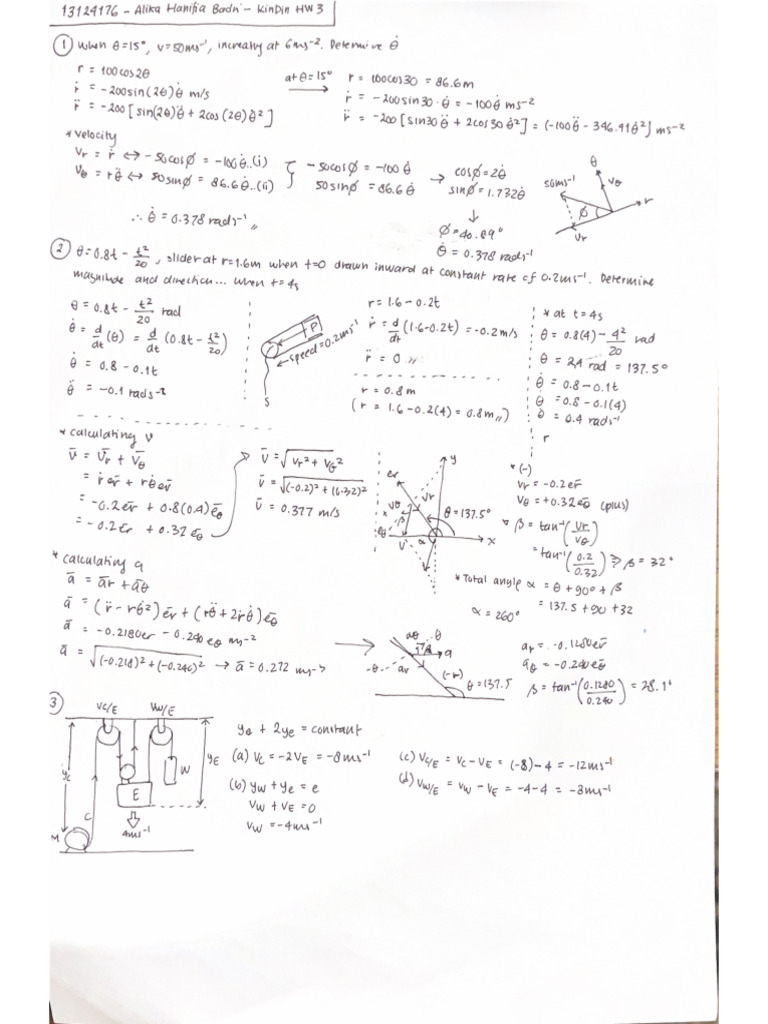 13124176 - Alika Hanifia Badri - KinDin HW 3
① When θ=15°, v=50ms⁻¹, increasing at 6ms⁻². Determine θ̇
r = 100cos2θ
ṙ = -200sin(2θ)θ̇ m/s
r̈ = -200[sin(2θ)θ̈ + 2cos(2θ)θ̇²]
at θ=15° →
r = 100cos30 = 86.6m
ṙ = -200sin30·θ̇ = -100θ̇ ms⁻²
r̈ = -200[sin30θ̈ + 2cos30θ̇²] = (-100θ̈ - 346.41θ̇²) ms⁻²
* velocity
Vr = ṙ ↔ -50cosφ = -100θ̇..(i)
Vθ = rθ̇ ↔ 50sinφ = 86.6θ̇..(ii)
-50cosφ = -100θ̇
50sinφ = 86.6θ̇
→ cosφ = 2θ̇
sinφ = 1.732θ̇
↓
φ = 40.89°
θ̇ = 0.378 rads⁻¹
∴ θ̇ = 0.378 rads⁻¹,,
θ
50ms⁻¹
Vθ
r
φ
Vr
② θ = 0.8t - t²/20, slider at r=1.6m when t=0 drawn inward at constant rate of 0.2ms⁻¹. Determine
magnitude and direction... when t=4s
θ = 0.8t - t²/20 rad
θ̇ = d/dt(θ) = d/dt(0.8t - t²/20)
θ̇ = 0.8 - 0.1t
θ̈ = -0.1 rads⁻²
P
speed = 0.2ms⁻¹
S
r = 1.6 - 0.2t
ṙ = d/dt(1.6-0.2t) = -0.2m/s
r̈ = 0,,
r = 0.8m
(r = 1.6 - 0.2(4) = 0.8m,,)
* at t = 4s
θ = 0.8(4) - 4²/20 rad
θ = 2,4 rad = 137.5°
θ̇ = 0.8 - 0.1t
θ̇ = 0.8 - 0.1(4)
θ̇ = 0.4 rads⁻¹
r
* calculating v
v̄ = V̄r + V̄θ
= ṙ ēr + rθ̇ ēr
= -0.2ēr + 0.8(0.4)ēθ
= -0.2ēr + 0.32 ēθ
v̄ = √(vr² + vθ²)
v̄ = √((-0.2)² + (0.32)²)
v̄ = 0.377 m/s
er
y
Vr
Vθ
β
θ = 137.5°
eθ
V
α
x
* (-)
Vr = -0.2er̄
Vθ = +0.32er̄ (plus)
β = tan⁻¹(Vr/Vθ)
= tan⁻¹(0.2/0.32) β = 32°
* Total angle α = θ + 90° + β
= 137.5 + 90 + 32
α = 260°
* calculating a
ā = ār + āθ
ā = (r̈ - rθ̇²)ēr + (rθ̈ + 2ṙθ̇)ēθ
ā = -0.2180er - 0.240 eθ ms⁻²
ā = √((-0.218)² + (-0.240)²) → ā = 0.272 ms⁻²
aθ
θ
a
-θ
ar
(-r)
θ = 137.5
ar = -0.1280er̄
aθ = -0.240er̄
β = tan⁻¹(0.1280/0.240) = 28.1°
③
VC/E
VW/E
yE
yc
W
E
C
4ms⁻¹
M
ye + 2ye = constant
(a) Vc = -2VE = -8ms⁻¹
(b) yw + ye = e
Vw + VE = 0
Vw = -4ms⁻¹
(c) VC/E = Vc - VE = (-8) - 4 = -12ms⁻¹
(d) VW/E = Vw - VE = -4 - 4 = -8ms⁻¹